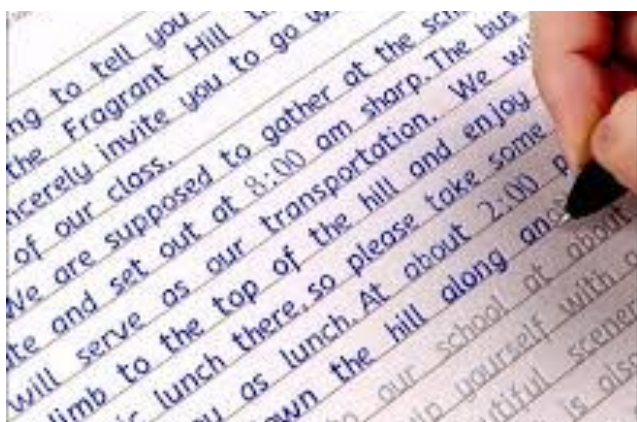 ng to tell you
the Fragrant Hill
ncerely invite you to go
of our class.
We are supposed to gather at the sch
te and set out at 8:00 am sharp. The bus
will serve as our transportation. We wi
limb to the top of the hill and enjoy
ic lunch there, so please take some
ou as lunch. At about 2:00 p
own the hill along an
to our school at about
lp yourself with a
utiful scener
is also